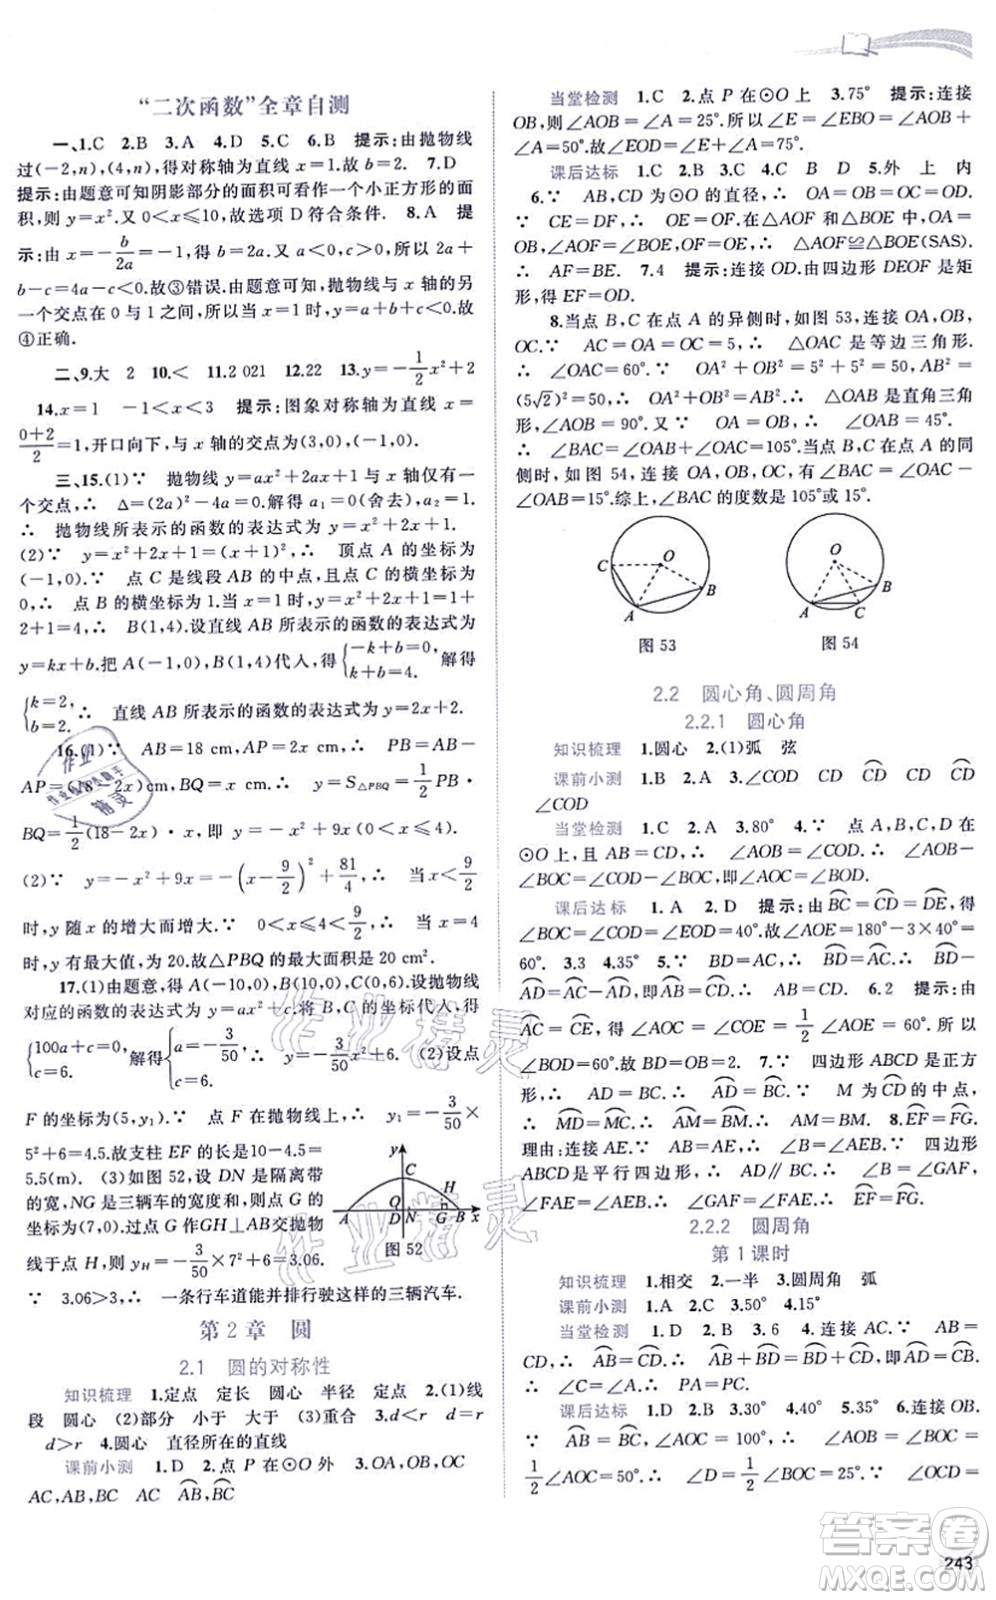 “二次函数”全章自测
一、1.C 2.B 3.A 4.D 5.C 6.B 提示:由抛物线
过(-2,n),(4,n),得对称轴为直线x=1.故b=2. 7.D
提示:由题意可知阴影部分的面积可看作一个小正方形的面
积,则y=x².又0<x≤10,故选项D符合条件. 8.A 提
示:由x=-b/2a=-1,得b=2a.又a>0,c>0.所以2a+
b-c=4a-c>0.故③错误.由题意可知,抛物线与x轴的另
一个交点在0与1之间,所以当x=1时,y=a+b+c>0.故
④正确.
二、9.大 2 10.< 11.2 021 12.22 13.y=-1/2x²+2
14.x=1 -1<x<3 提示:图象对称轴为直线x=
(0+2)/2=1,开口向下,与x轴的交点为(3,0),(-1,0).
三、15.(1)∵ 抛物线y=ax²+2ax+1与x轴仅有一
个交点,∴ Δ=(2a)²-4a=0.解得a₁=0(舍去),a₂=1.
∴ 抛物线所表示的函数的表达式为y=x²+2x+1.
(2)∵ y=x²+2x+1=(x+1)²,∴ 顶点A的坐标为
(-1,0).∵ 点C是线段AB的中点,且点C的横坐标为
0,∴ 点B的横坐标为1.当x=1时,y=x²+2x+1=1+
2+1=4,∴ B(1,4).设直线AB所表示的函数的表达式为
y=kx+b.把A(-1,0),B(1,4)代入,得{-k+b=0, k+b=4. 解得
{k=2, b=2. ∴ 直线AB所表示的函数的表达式为y=2x+2.
16.(1)∵ AB=18 cm,AP=x cm,∴ PB=AB-
AP=(18-x)cm.∵ BQ=2x cm,∴ y=S△PBQ=1/2PB·
BQ=1/2(18-2x)·x,即y=-x²+9x(0<x≤4).
(2)∵ y=-x²+9x=-(x-9/2)²+81/4,∴ 当x<9/2
时,y随x的增大而增大.∵ 0<x≤4<9/2,∴ 当x=4
时,y有最大值,为20.故△PBQ的最大面积是20 cm².
17.(1)由题意,得A(-10,0),B(10,0),C(0,6).设抛物线
对应的函数的表达式为y=ax²+c.将B,C的坐标代入,得
{100a+c=0, c=6. 解得{a=-3/50, c=6. ∴ y=-3/50x²+6. (2)设点
F的坐标为(5,y₁).∵ 点F在抛物线上,∴ y₁=-3/50×
5²+6=4.5.故支柱EF的长是10-4.5=
5.5(m). (3)如图52,设DN是隔离带
的宽,NG是三辆车的宽度和,则点G的
坐标为(7,0).过点G作GH⊥AB交抛物
线于点H,则yH=-3/50×7²+6=3.06.
y C O H A D N G B x
图52
∵ 3.06>3,∴ 一条行车道能并排行驶这样的三辆汽车.
第2章 圆
2.1 圆的对称性
知识梳理 1.定点 定长 圆心 半径 定点 2.(1)线
段 圆心 (2)部分 小于 大于 (3)重合 3.d<r d=r
d>r 4.圆心 直径所在的直线
课前小测 1.D 2.点P在⊙O外 3.OA,OB,OC
AC,AB,BC AC AB,BC
当堂检测 1.C 2.点P在⊙O上 3.75° 提示:连接
OB,则∠AOB=∠A=25°.所以∠E=∠EBO=∠A+
∠A=50°.故∠EOD=∠E+∠A=75°.
课后达标 1.C 2.C 3.C 4.C B D 5.外 上 内
6.∵ AB,CD为⊙O的直径,∴ OA=OB,OC=OD.
∵ CE=DF,∴ OE=OF.在△AOF和△BOE中,OA=
OB,∠AOF=∠BOE,OF=OE.∴ △AOF≌△BOE(SAS).
∴ AF=BE. 7.4 提示:连接OD.由四边形DEOF是矩
形,得EF=OD.
8.当点B,C在点A的异侧时,如图53,连接OA,OB,
OC.∵ AC=OA=OC=5,∴ △OAC是等边三角形.
∴ ∠OAC=60°.∵ OA²+OB²=5²+5²=50,AB²=
(5√2)²=50,∴ OA²+OB²=AB².∴ △OAB是直角三角
形,∠AOB=90°.又∵ OA=OB,∴ ∠OAB=45°.
∴ ∠BAC=∠OAB+∠OAC=105°.当B,C在点A的同
侧时,如图54,连接OA,OB,OC.∴ ∠BAC=∠OAC
-∠OAB=15°.综上,∠BAC的度数是105°或15°.
O C B A
图53
O B A C
图54
2.2 圆心角、圆周角
2.2.1 圆心角
知识梳理 1.圆心 2.(1)弧 弦
课前小测 1.B 2.A 3.∠COD CD CD CD
∠COD
当堂检测 1.C 2.A 3.80° 4.∵ 点A,B,C,D在
⊙O上,且AB=CD.∴ ∠AOB=∠COD.∴ ∠AOB-
∠BOC=∠COD-∠BOC,即∠AOC=∠BOD.
课后达标 1.A 2.D 提示:由BC=CD=DE,得
∠BOC=∠COD=∠DOE=40°.故∠AOE=180°-3×40°=
60°. 3.3 4.35° 5.∵ BD=AC,∴ BD=AC.∴ BD-
AD=AC-AD,即AB=CD.∴ AB=CD. 6.2 提示:由
AC=CE,得∠AOC=∠COE=1/2∠AOE=60°.所以
∠BOD=60°.故BD=OB=2. 7.∵ 四边形ABCD是正方
形,∴ AD=BC.∴ AD=BC.∵ M为CD的中点,
∴ MD=MC.∴ AM=BM.∴ AM=BM. 8.EF=FG.
理由:连接AE.∵ AB=AE,∴ ∠B=∠AEB.∵ 四边形
ABCD是平行四边形,∴ AD∥BC.∴ ∠B=∠GAF,
∠FAE=∠AEB.∴ ∠GAF=∠FAE.∴ EF=FG.
2.2.2 圆周角
第1课时
知识梳理 1.相交 2.一半 3.圆周角 弧
课前小测 1.A 2.C 3.50° 4.15°
当堂检测 1.C 2.B 3.6 4.连接AC.∵ AB=
CD,∴ AB=CD.∴ AB+BD=CD+BD,即AD=CB.
∴ ∠C=∠A.∴ PA=PC.
课后达标 1.D 2.B 3.30° 4.40° 5.35° 6.连接OB.
∵ AB=BC,∠AOC=100°,∴ ∠BOC=∠AOB=
1/2∠AOC=50°.∴ ∠D=1/2∠BOC=25°.∵ ∠OCD=
243
答案圈
MXQE.COM
作业精灵
作业精灵